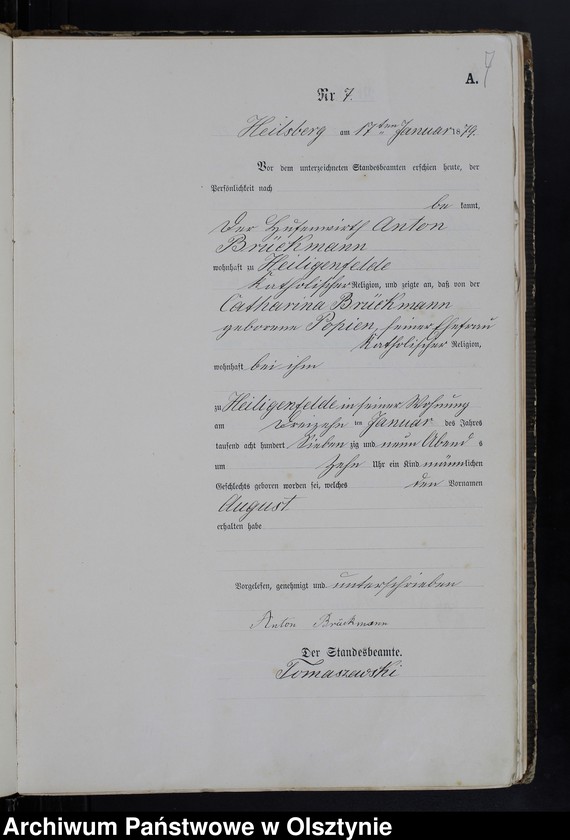 7
A.
Nr. 7.
Heilsberg am 17ten Januar 1879.
Vor dem unterzeichneten Standesbeamten erschien heute, der
Persönlichkeit nach
be kannt,
der Hufenwirth Anton
Brückmann
wohnhaft zu Heiligenfelde
Katholischer Religion, und zeigte an, daß von der
Catharina Brückmann
geborene Popien, seiner Ehefrau
Katholischer Religion,
wohnhaft bei ihm
zu Heiligenfelde in seiner Wohnung
am Dreizehn ten Januar des Jahres
tausend acht hundert Sieben zig und neun Abend s
um zehn Uhr ein Kind männlichen
Geschlechts geboren worden sei, welches den Vornamen
August
erhalten habe
Vorgelesen, genehmigt und unterschrieben
Anton Brückmann
Der Standesbeamte.
Tomaszewski
Archiwum Państwowe w Olsztynie